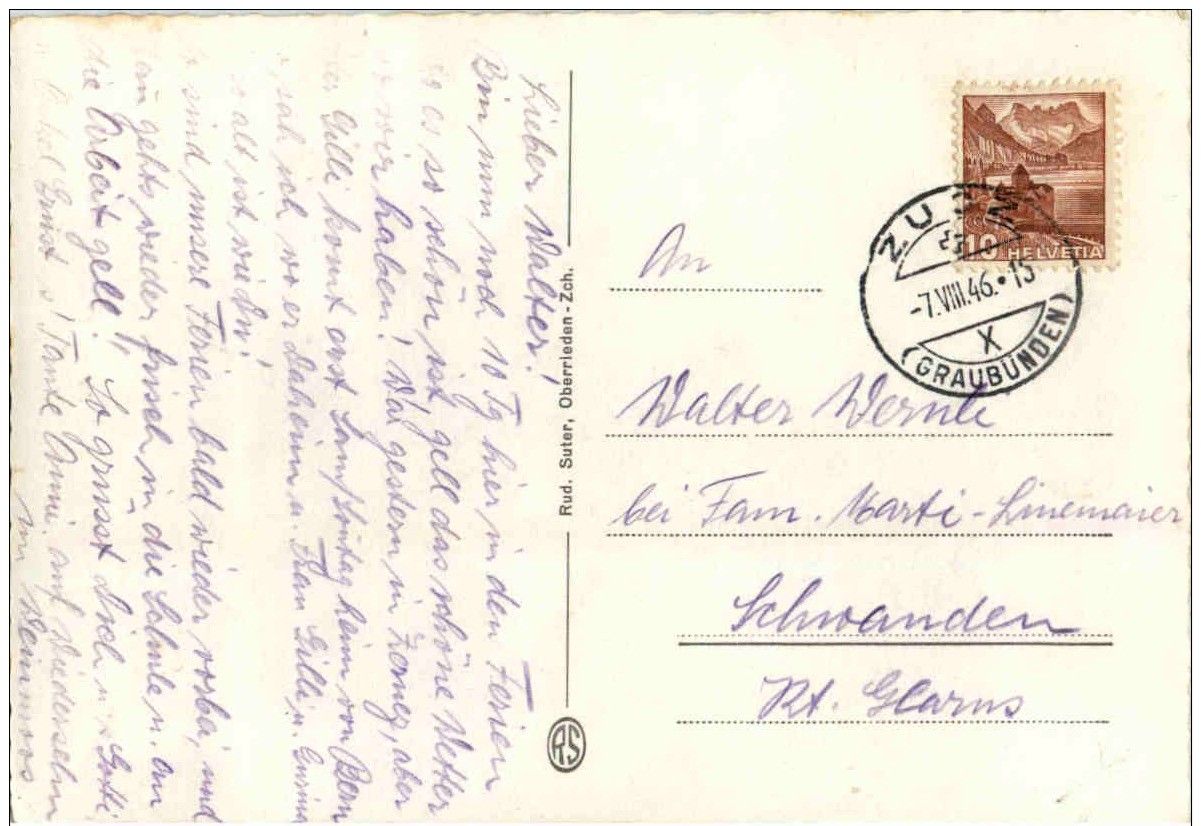 Lieber Walter!
Bin nun noch 10 Tg hier in den Ferien
es so schön ist gell das schöne Wetter
wir haben! War gestern in Zernez, aber
Gilli komt erst Samstag heim von Bern
sah ich wo er daheim u Frau Gilli u.
alt ist wieder!
sind unsere Ferien bald wieder vorbei, und
gehts wieder frisch in die Schule u. an
die Arbeit gell! So grüsst Dich u.
Tante Anni auf Wiedersehn
Rud. Suter, Oberrieden - Zch.
RS
HELVETIA
10
ZU
-7.VIII.46.•15
X
(GRAUBÜNDEN)
An
Walter Wernli
bei Fam. Marti-Linemaier
Schwanden
Kt. Glarus